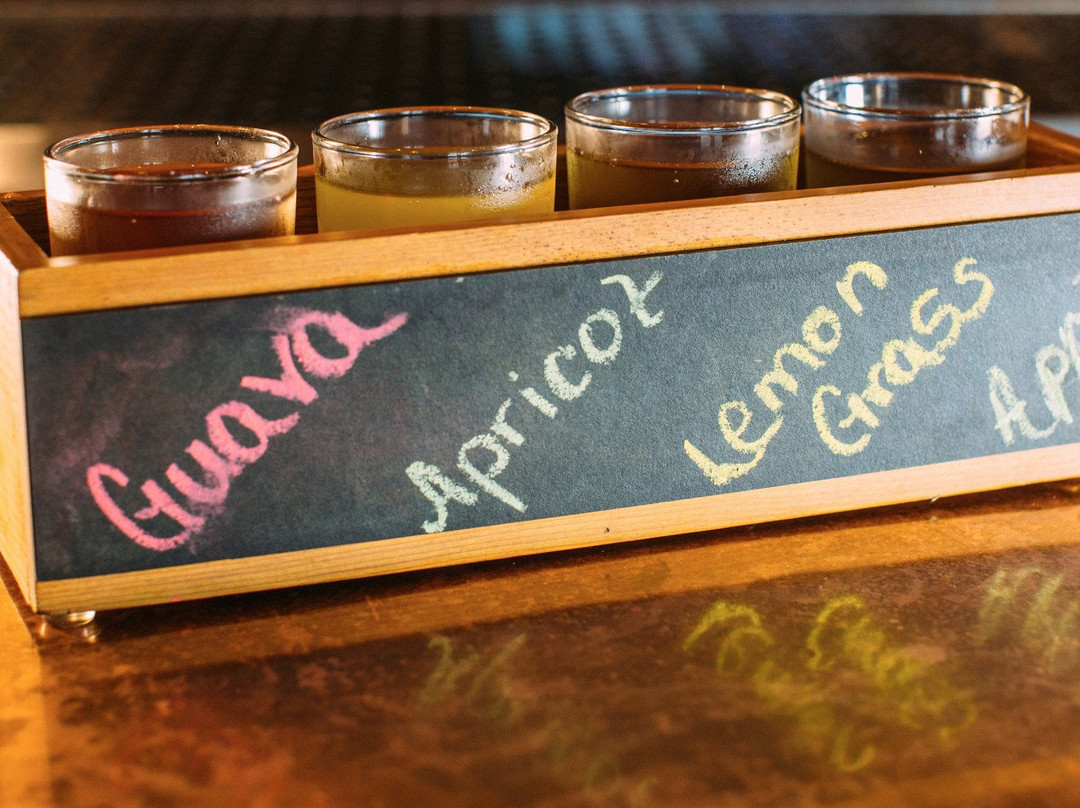 Guava
Apricot
Lemon
Grass